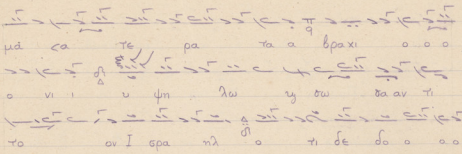 μα σα τε ρα τα α βραχι ο ο ο
ο νι ι υ ψη λω τη σω σα αν τι
το ον Ι σρα ηλ ο τι δε δο ο ο ο